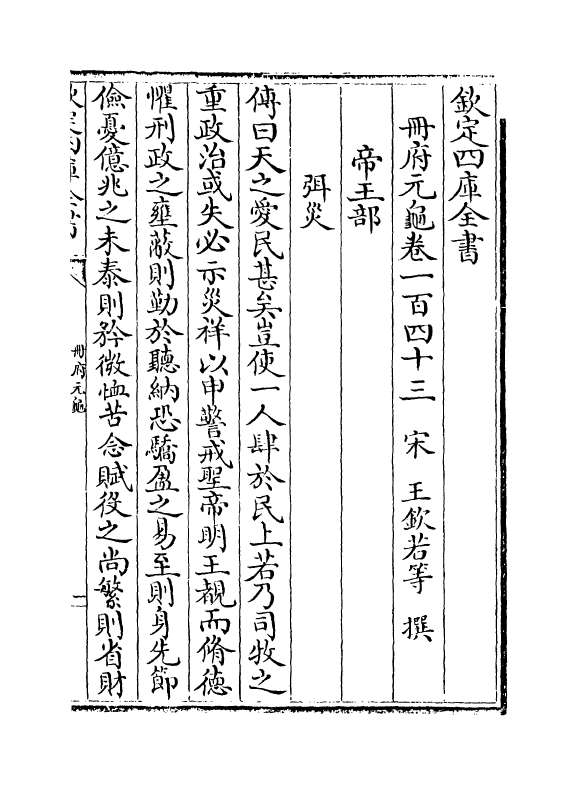 欽定四庫全書
冊府元龜卷一百四十三　宋　王欽若等　撰
帝王部
弭災
傳曰天之愛民甚矣豈使一人肆於民上若乃司牧之
重政治或失必示災祥以申警戒聖帝明王覩而脩德
懼刑政之壅蔽則勤於聽納恐驕盈之易至則身先節
儉憂億兆之未泰則矜微恤苦念賦役之尚繁則省財
冊府元龜